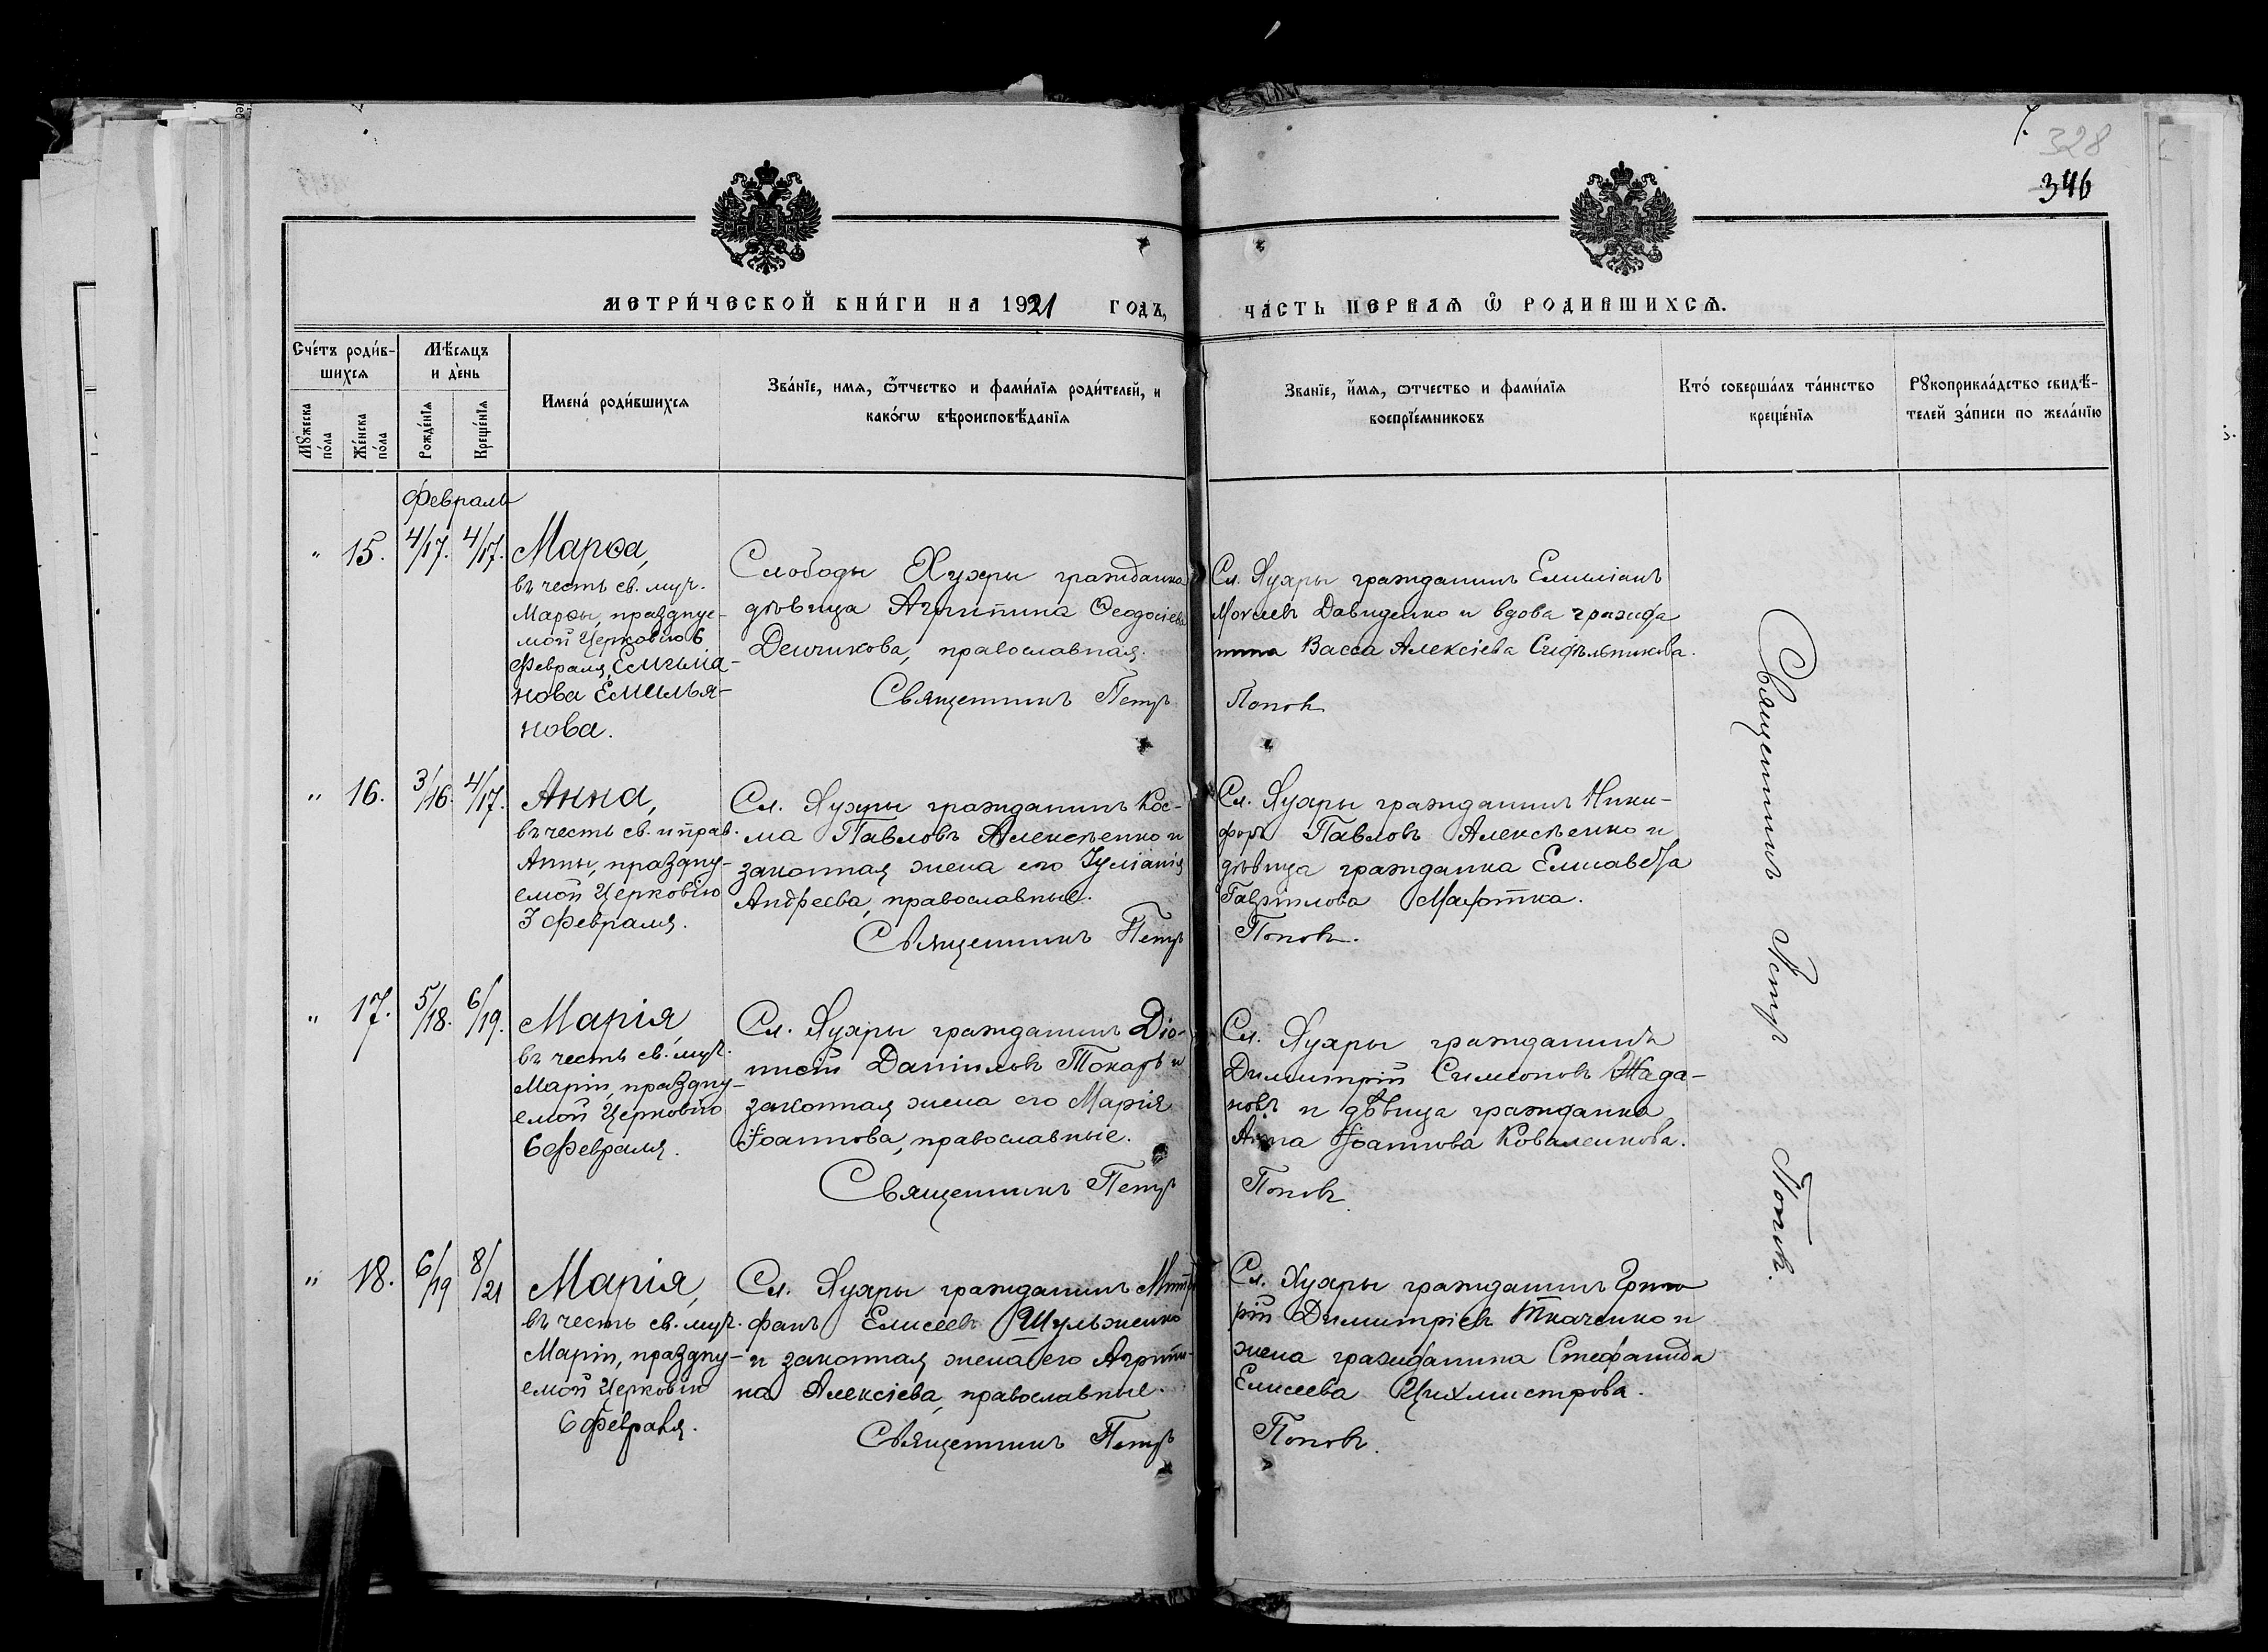 7.
328
346
МЕТРИ́ЧЕСКОЙ КНИ́ГИ НА 1921 ГОДЪ,
ЧА́СТЬ ПЕРВАЯ Ѽ РОДИВШИХСЯ.
Сче́тъ роди́в-
шихся
Мѣ́сяцъ
и де́нь
Имена́ роди́вшихся
Зва́нїе, имя, ѻ҆́тчество и фами́лїя роди́телей, и
како́гѡ вѣроисповѣ́данїя
Зва́нїе, и́мя, ѻтчество и фами́лїя
воспрїе́мниковъ
Кто́ соверша́лъ та́инство
креще́нїя
Рꙋкоприкла́дство свидѣ́-
телей за́писи по жела́нїю
Мꙋжеска
по́ла
Же́нска
по́ла
Рожде́нїя
Креще́нїя
Февраль
" 15. 4/17. 4/17.
Марѳа,
въ честь св. муч.
Марѳы, праздпуе-
мой Церковію 6
Февраля, Емиліа-
нова Емилья-
нова.
Слободы Хухры гражданка
дѣвица Агрипина Ѳеодосіева
Демчикова, православная.
Священникъ Петръ
Сл. Хухры гражданинъ Емиліанъ
Моѵсеевъ Давиденко и вдова гражда
нина Васса Алексіева Сидѣльникова.
Поповъ
" 16. 3/16. 4/17.
Анна,
въ честь св. и прав.
Анны, праздну-
емой Церковію
3 Февраля.
Сл. Хухры гражданинъ Кос-
ма Павловъ Алексѣенко и
законная жена его Іуліанія
Андреева, православные.
Священникъ Петръ
Сл. Хухры гражданинъ Ники-
форъ Павловъ Алексѣенко и
дѣвица гражданка Елисавета
Гавріилова
Поповъ.
" 17. 5/18. 6/19.
Марія,
въ честь св. муч.
Маріи, праздну-
емой Церковію
6 Февраля.
Сл. Хухры гражданинъ Діо-
нисій Даніиловъ Токарь и
законная жена его Марія
Іоаннова, православные.
Священникъ Петръ
Сл. Хухры гражданинъ
Димитрій Симеоновъ Жада-
новъ и дѣвица гражданка
Анна Іоаннова Коваленкова.
Поповъ
" 18. 6/19 8/21
Марія,
въ честь св. муч.
Маріи, праздну-
емой Церковію
6 Февраля.
Сл. Хухры гражданинъ Митро
фанъ Елисеевъ Шульженко
и законная жена его Агрипи-
на Алексіева, православные.
Священникъ Петръ
Сл. Хухры гражданинъ Григо
рій Димитріевъ Ткаченко и
жена гражданина Стефанида
Елисеева Цихмистрова.
Поповъ.
Священникъ Петръ Поповъ.